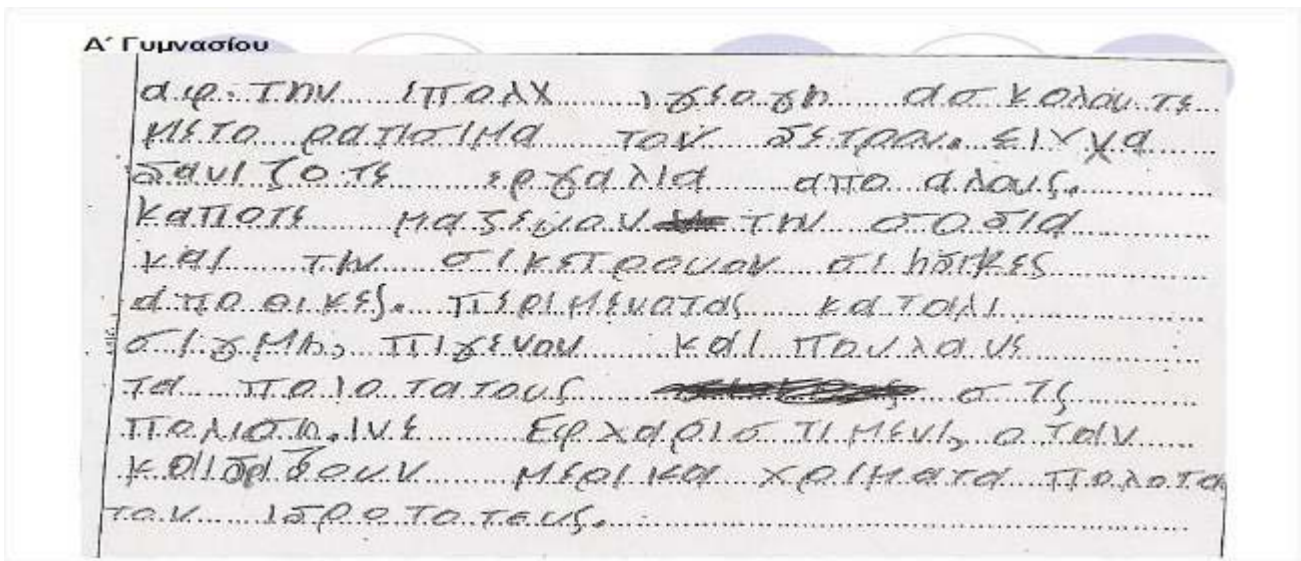 Α΄ Γυμνασίου
αφ. την ιπολχ ιγεογη ασκολουτε
μετο ρατισιμα τον δετρον. ειχχα
δανιζοτε εργαλια απο αλους.
καποτε μαζεύουν την σοδια
και την σικετρουον σι ηδικες
αποθικες. περιμενοτας καταλι
σιγμη, πιγενου και πουλανε
τα πολοτατους στς
πολιστη. ινε Εφχαριστιμενι, οταν
μερικα χριματα πολοτα
τον ιδροτοτευς.